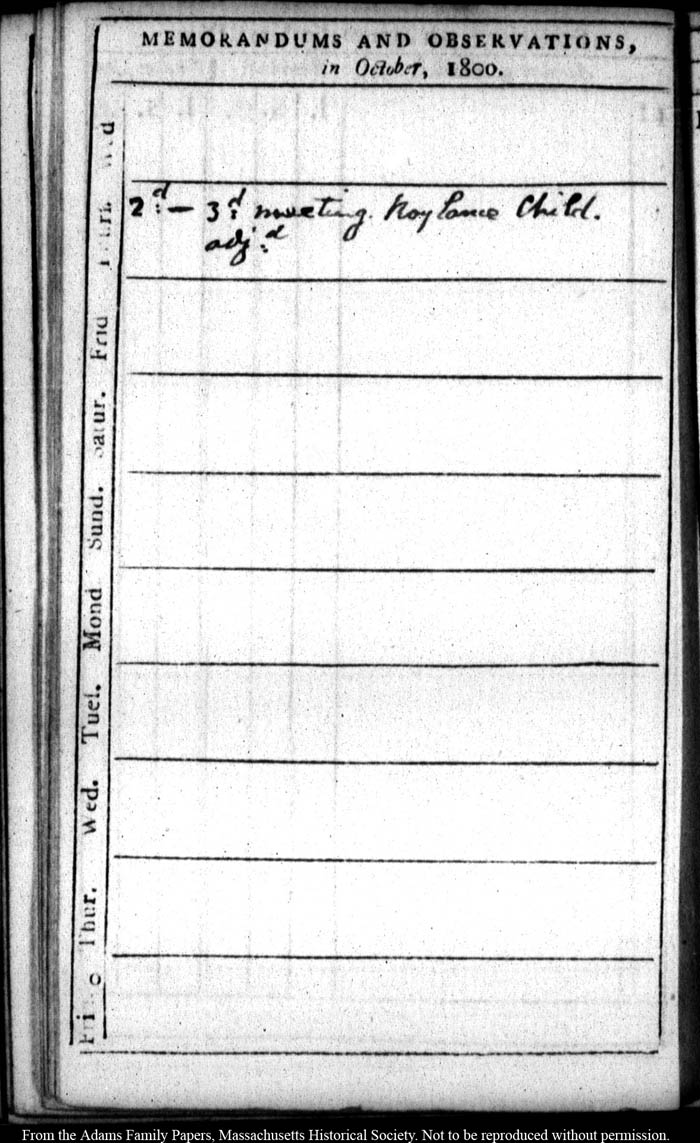 MEMORANDUMS AND OBSERVATIONS,
in October, 1800.
Wed
Thur.
2.d — 3.d meeting. Roylance Child.
adj.d
Frid
Satur.
Sund.
Mond
Tues.
Wed.
Thur.
Fri
From the Adams Family Papers, Massachusetts Historical Society. Not to be reproduced without permission.